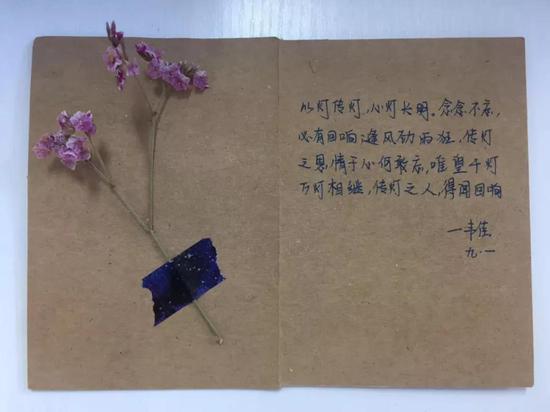 以灯传灯，心灯长明。念念不忘，
必有回响逢风劲雨狂，传灯
之恩，情于心何敢忘，唯望千灯
万灯相继，传灯之人，得闻回响
—韦佳
九.一